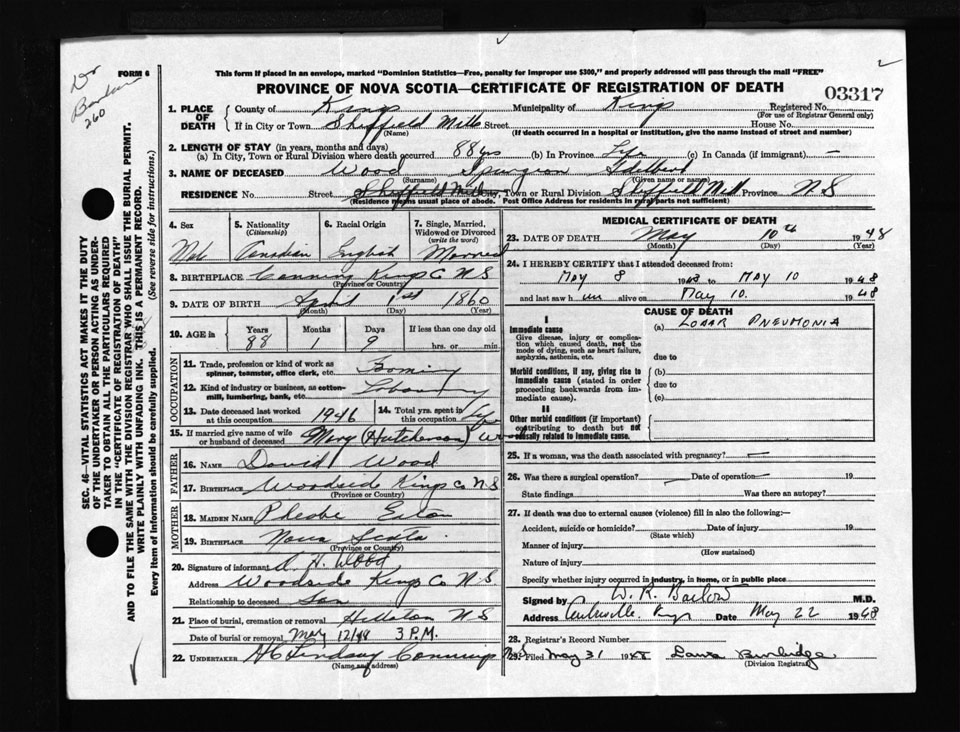 FORM 6
Dr
260
This form if placed in an envelope, marked "Dominion Statistics—Free, penalty for improper use $300," and properly addressed will pass through the mail "FREE"
PROVINCE OF NOVA SCOTIA—CERTIFICATE OF REGISTRATION OF DEATH
03317
1. PLACE OF DEATH County of Kings Municipality of Kings Registered No.
(For use of Registrar General only)
If in City or Town Sheffield Mills Street House No.
(Name) (If death occurred in a hospital or institution, give the name instead of street and number)
2. LENGTH OF STAY (in years, months and days)
(a) In City, Town or Rural Division where death occurred 88 yrs (b) In Province Life (c) In Canada (if immigrant) —
3. NAME OF DECEASED Wood Spurgeon
(Surname) (Given name or names)
RESIDENCE No. Street Sheffield Mills City, Town or Rural Division Sheffield Mill Province N S
(Residence means usual place of abode. Post Office Address for residents in rural parts not sufficient)
4. Sex Male
5. Nationality (Citizenship) Canadian
6. Racial Origin English
7. Single, Married, Widowed or Divorced (write the word) Married
8. BIRTHPLACE Canning Kings Co N S
(Province or Country)
9. DATE OF BIRTH April 1st 1860
(Month) (Day) (Year)
10. AGE in Years Months Days If less than one day old
88 1 9 hrs. or min.
OCCUPATION
11. Trade, profession or kind of work as spinner, teamster, office clerk, etc. Farming
12. Kind of industry or business, as cotton-mill, lumbering, bank, etc. Labouring
13. Date deceased last worked at this occupation 1946
14. Total yrs. spent in this occupation Life
15. If married give name of wife or husband of deceased Mary (Hutcherson) Wood
FATHER
16. NAME David Wood
17. BIRTHPLACE Woodside Kings Co N S
(Province or Country)
MOTHER
18. MAIDEN NAME Pheobe Eaton
19. BIRTHPLACE Nova Scotia
(Province or Country)
20. Signature of informant A. H. Wood
Address Woodside Kings Co N S
Relationship to deceased Son
21. Place of burial, cremation or removal N S
Date of burial or removal May 12/48 3 P.M.
22. UNDERTAKER H C Lindsay Canning N.S.
(Name and address)
MEDICAL CERTIFICATE OF DEATH
23. DATE OF DEATH May 10th 1948
(Month) (Day) (Year)
24. I HEREBY CERTIFY that I attended deceased from:
May 8 1948 to May 10 1948
and last saw him alive on May 10. 1948
CAUSE OF DEATH
I
Immediate cause
Give disease, injury or complication which caused death, not the mode of dying, such as heart failure, asphyxia, asthenia, etc.
(a) LOBAR PNEUMONIA
due to
Morbid conditions, if any, giving rise to immediate cause (stated in order proceeding backwards from immediate cause).
(b)
due to
(c)
II
Other morbid conditions (if important) contributing to death but not causally related to immediate cause.
25. If a woman, was the death associated with pregnancy? —
26. Was there a surgical operation? — Date of operation — 19
State findings Was there an autopsy?
27. If death was due to external causes (violence) fill in also the following:—
Accident, suicide or homicide? Date of injury 19
(State which)
Manner of injury
(How sustained)
Nature of injury
Specify whether injury occurred in industry, in home, or in public place
Signed by W. R. Barlow M.D.
Address Centreville Kings Date May 22 1948
28. Registrar's Record Number
29. Filed May 31 1948 Laura Burbidge
(Division Registrar)
SEC. 46—VITAL STATISTICS ACT MAKES IT THE DUTY
OF THE UNDERTAKER OR PERSON ACTING AS UNDER-
TAKER TO OBTAIN ALL THE PARTICULARS REQUIRED
IN THE "CERTIFICATE OF REGISTRATION OF DEATH"
AND TO FILE THE SAME WITH THE DIVISION REGISTRAR WHO SHALL ISSUE THE BURIAL PERMIT.
WRITE PLAINLY WITH UNFADING INK. THIS IS A PERMANENT RECORD.
Every item of information should be carefully supplied. (See reverse side for instructions.)